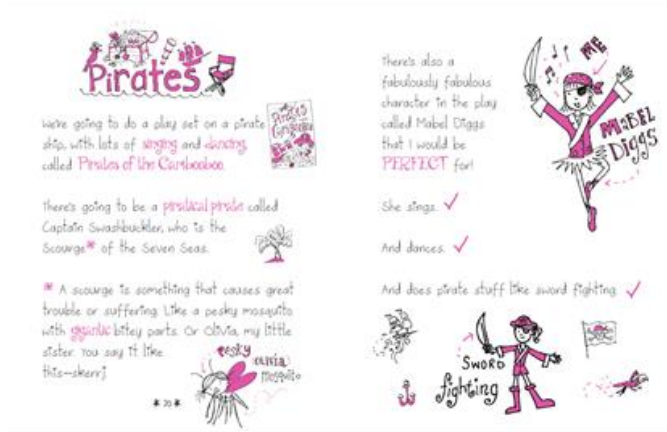 Pirates
We're going to do a play set on a pirate
ship, with lots of singing and dancing,
called Pirates of the Caribooboo.
There's going to be a piratical pirate called
Captain Swashbuckler, who is the
Scourge* of the Seven Seas.
* A scourge is something that causes great
trouble or suffering. Like a pesky mosquito
with gigantic bitey parts. Or Olivia, my little
sister. You say it like
this—skerrj.
Pesky
Olivia
Mosquito
* 20 *
There's also a
fabulously fabulous
character in the play
called Mabel Diggs
that I would be
PERFECT for!
ME
MABEL
DIGGS
She sings. ✓
And dances. ✓
And does pirate stuff like sword fighting. ✓
SWORD
fighting